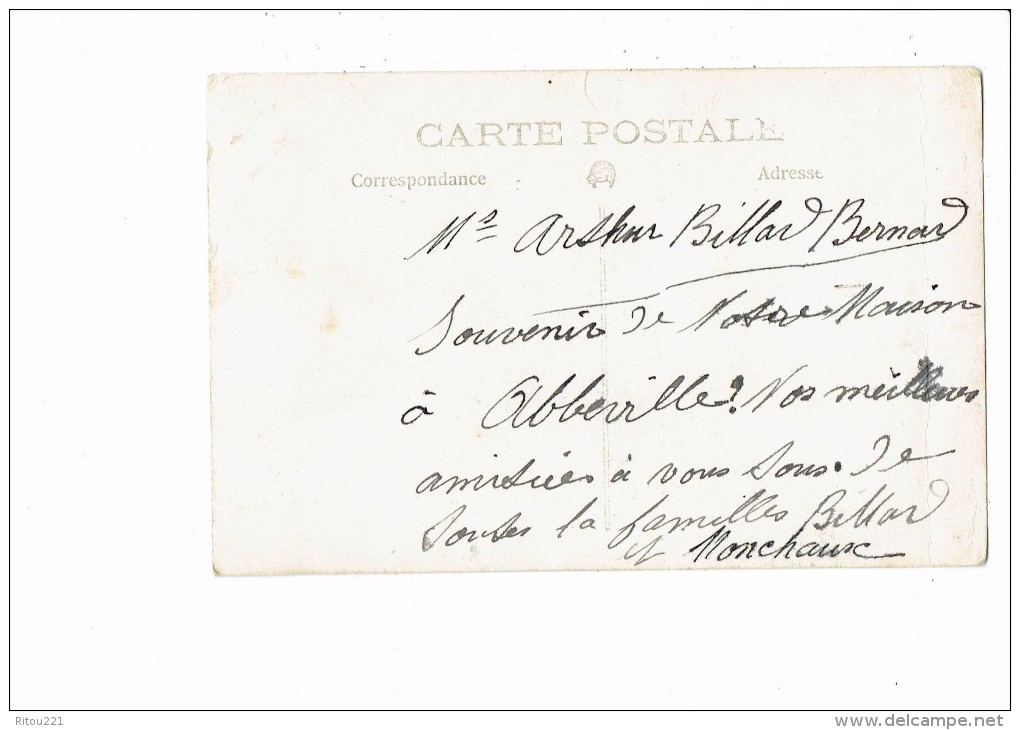 CARTE POSTALE
Correspondance Adresse
Mr Arthur Billard Bernard
Souvenir de Notre Maison
à Abbeville. Nos meilleures
amitiées à vous tous. De
toutes la familles Billard
et Monchaux
Ritou221
www.delcampe.net